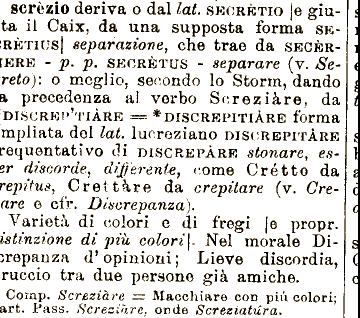 scrèzio deriva o dal lat. SECRÈTIO [e giu-
ta il Caix, da una supposta forma SE-
CRÈTIUS] separazione, che trae da SECÈR-
NERE - p. p. SECRÈTUS - separare (v. Se-
creto): o meglio, secondo lo Storm, dando
a precedenza al verbo Screziàre, da
DISCREP'TIÀRE = *DISCREPITIÀRE forma
mpliata del lat. lucreziano DISCREPITÀRE
requentativo di DISCREPÀRE stonare, es-
er discorde, differente, come Crétto da
repitus, Crettàre da crepitare (v. Cre-
are e cfr. Discrepanza).
Varietà di colori e di fregi [e propr.
istinzione di più colori]. Nel morale Di-
crepanza d'opinioni; Lieve discordia,
ruccio tra due persone già amiche.
Comp. Screziàre = Macchiare con più colori;
art. Pass. Screziàre, onde Screziatúra.